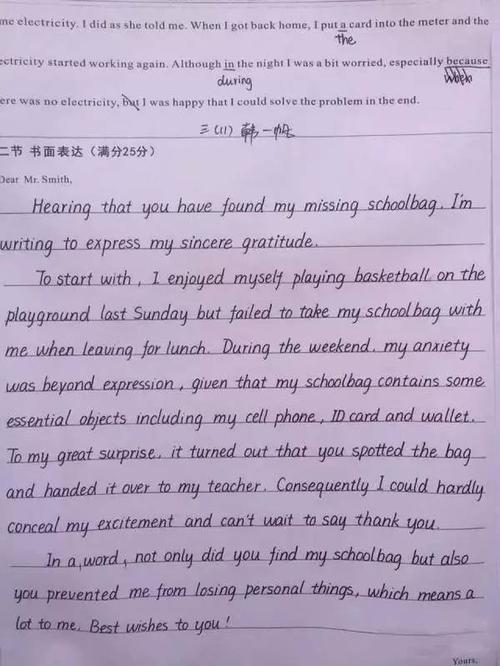 me electricity. I did as she told me. When I got back home, I put a card into the meter and the
the
ectricity started working again. Although in the night I was a bit worried, especially because
during
ere was no electricity, but I was happy that I could solve the problem in the end.
三(11) 韩一帆
二节 书面表达（满分25分）
Dear Mr. Smith,
Hearing that you have found my missing schoolbag. I'm
writing to express my sincere gratitude.
To start with, I enjoyed myself playing basketball on the
playground last Sunday but failed to take my schoolbag with
me when leaving for lunch. During the weekend. my anxiety
was beyond expression, given that my schoolbag contains some
essential objects including my cell phone, ID card and wallet.
To my great surprise, it turned out that you spotted the bag
and handed it over to my teacher. Consequently I could hardly
conceal my excitement and can't wait to say thank you.
In a word, not only did you find my schoolbag but also
you prevented me from losing personal things, which means a
lot to me. Best wishes to you!
Yours,